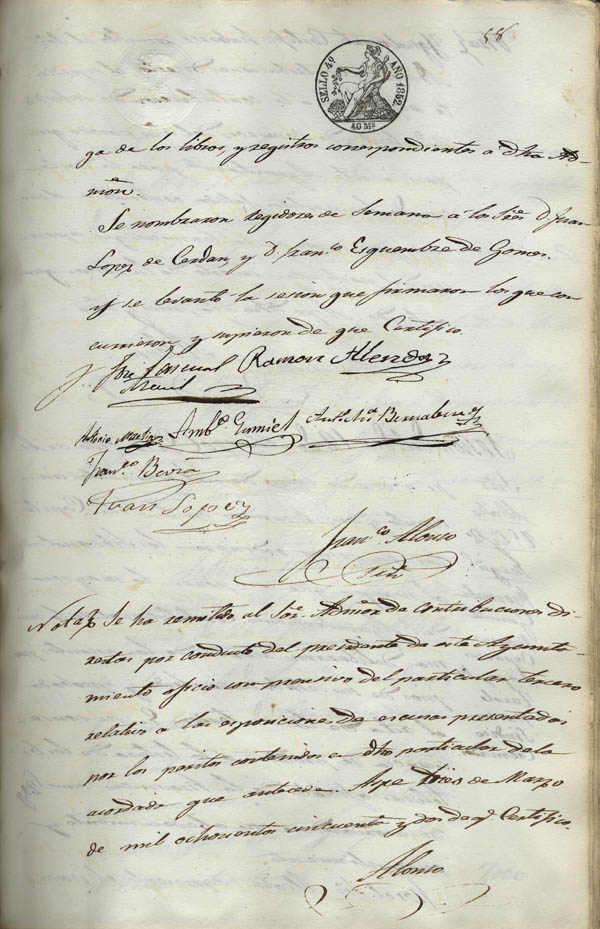 58
SELLO 4º AÑO 1852.
40 Ms
ga de los libros, y registros correspondientes a dha Ad-
mon.
Se nombraron regidores de Semana á los Sres D. Juan
Lopez de Cerdan, y D. Franco Esquembre de Gomes.
y se levantó la sesion que firmaron los que con
currieron, y supieron de que Certifico.
José Pascual Ramon Alendo
Antonio Ambo Gumiel Bernabeu
Franco
Juan Lopez
Franco Alonso
Srio
Nota Se ha remitido al Sor. Admor de contribuciones di-
rectas por conducto del presidente de este Ayunta-
miento oficio comprensivo del particular tercero
relativo a las esposiciones de escusas presentadas
por los peritos contenidos en dho particular de la
acordada que antecede. Aspe tres de Marzo
de mil ochocientos cincuenta y dos de q. Certifico.
Alonso